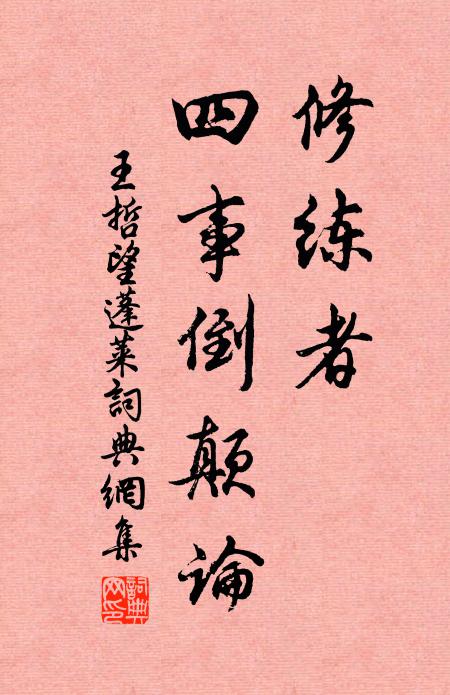 修练者
四事倒颠论
王哲望蓬莱詞典網集
詞典
网印